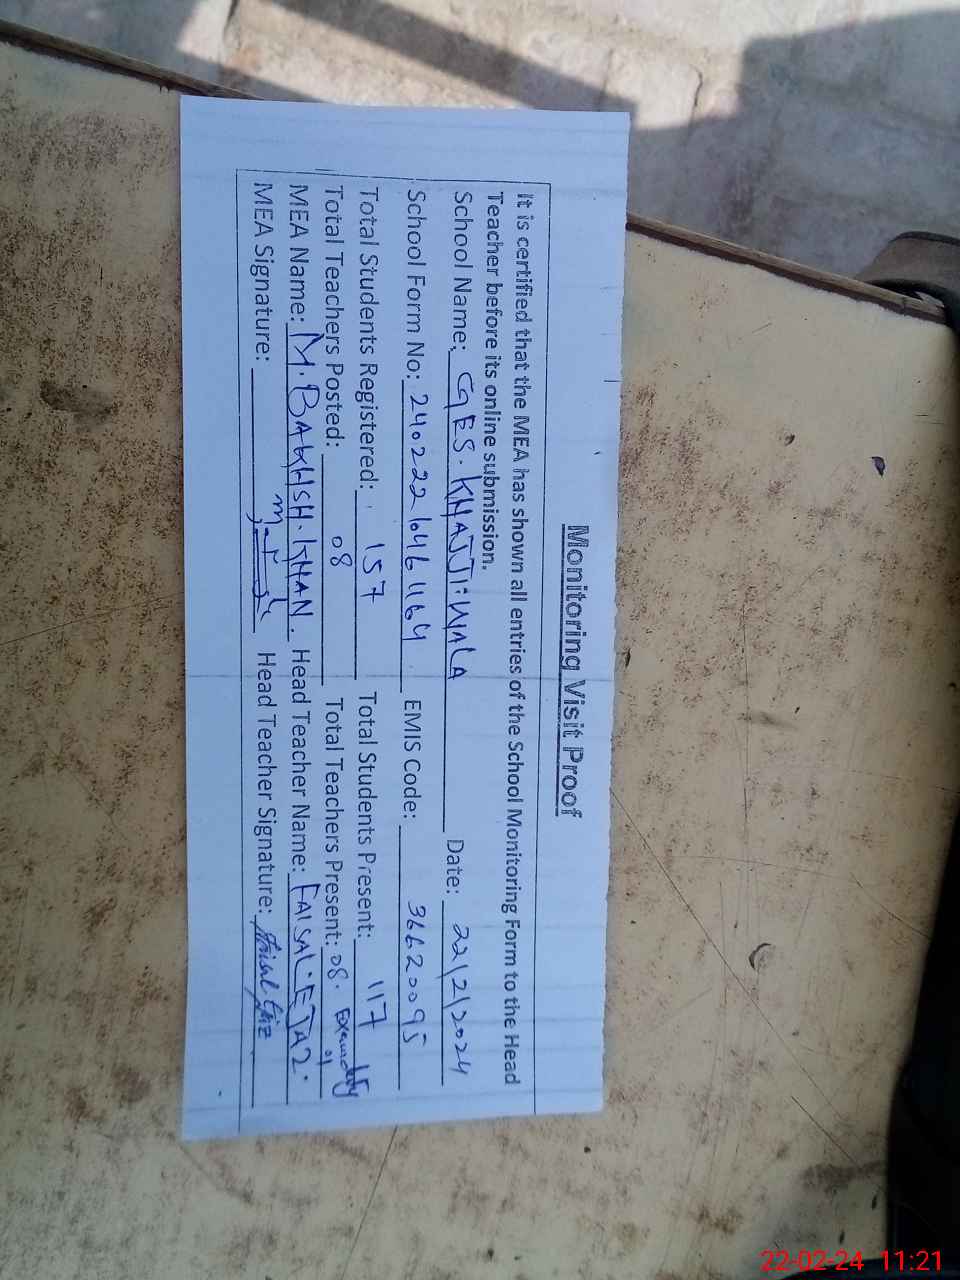 Monitoring Visit Proof
It is certified that the MEA has shown all entries of the School Monitoring Form to the Head
Teacher before its online submission.
School Name: GES. KHAJJI WALA Date: 22/2/2024
School Form No: 240222 646 1164 EMIS Code: 36620095
Total Students Registered: 157 Total Students Present: 117
Total Teachers Posted: 08 Total Teachers Present: 08.
MEA Name: M. BAKHSH. KHAN. Head Teacher Name: FAISAL. EJAZ.
MEA Signature: Head Teacher Signature: Faisal Ejaz
22-02-24 11:21